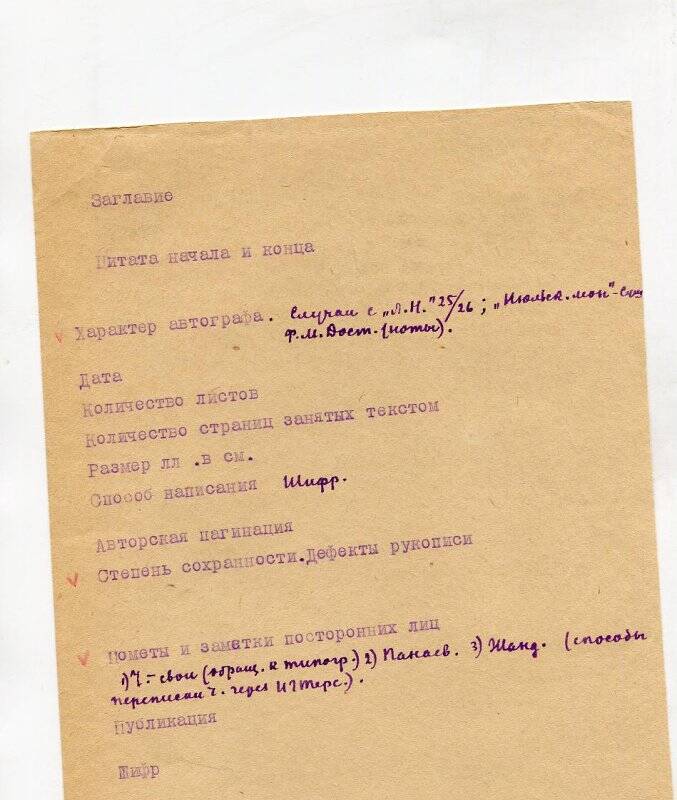 Заглавие
Цитата начала и конца
Характер автографа. Случаи с „Л.Н." 25/26; „Июльск. мон"-
Ф.М. Дост. (ноты).
Дата
Количество листов
Количество страниц занятых текстом
Размер лл .в см.
Способ написания Шифр.
Авторская пагинация
Степень сохранности.Дефекты рукописи
Пометы и заметки посторонних лиц
1) Ч - свои (обращ. к типогр.) 2) Панаев. 3) Жанд. (способы
переписки Ч. через III
Публикация
Шифр